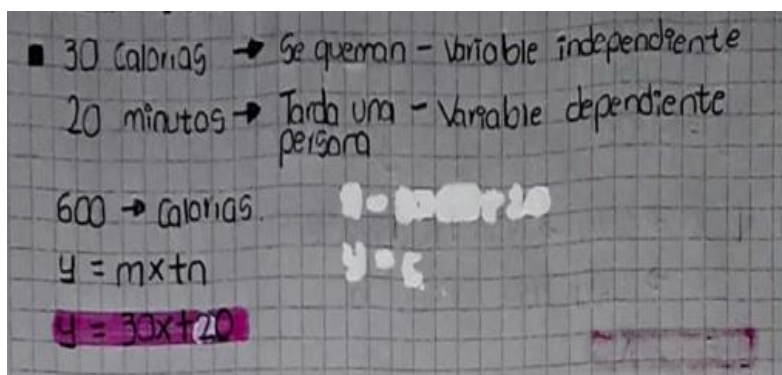 30 Calorias → Se queman - Variable independiente
20 minutos → Tarda una - Variable dependiente
persona
600 → Calorias.
y = mx+n
y = 30x+20